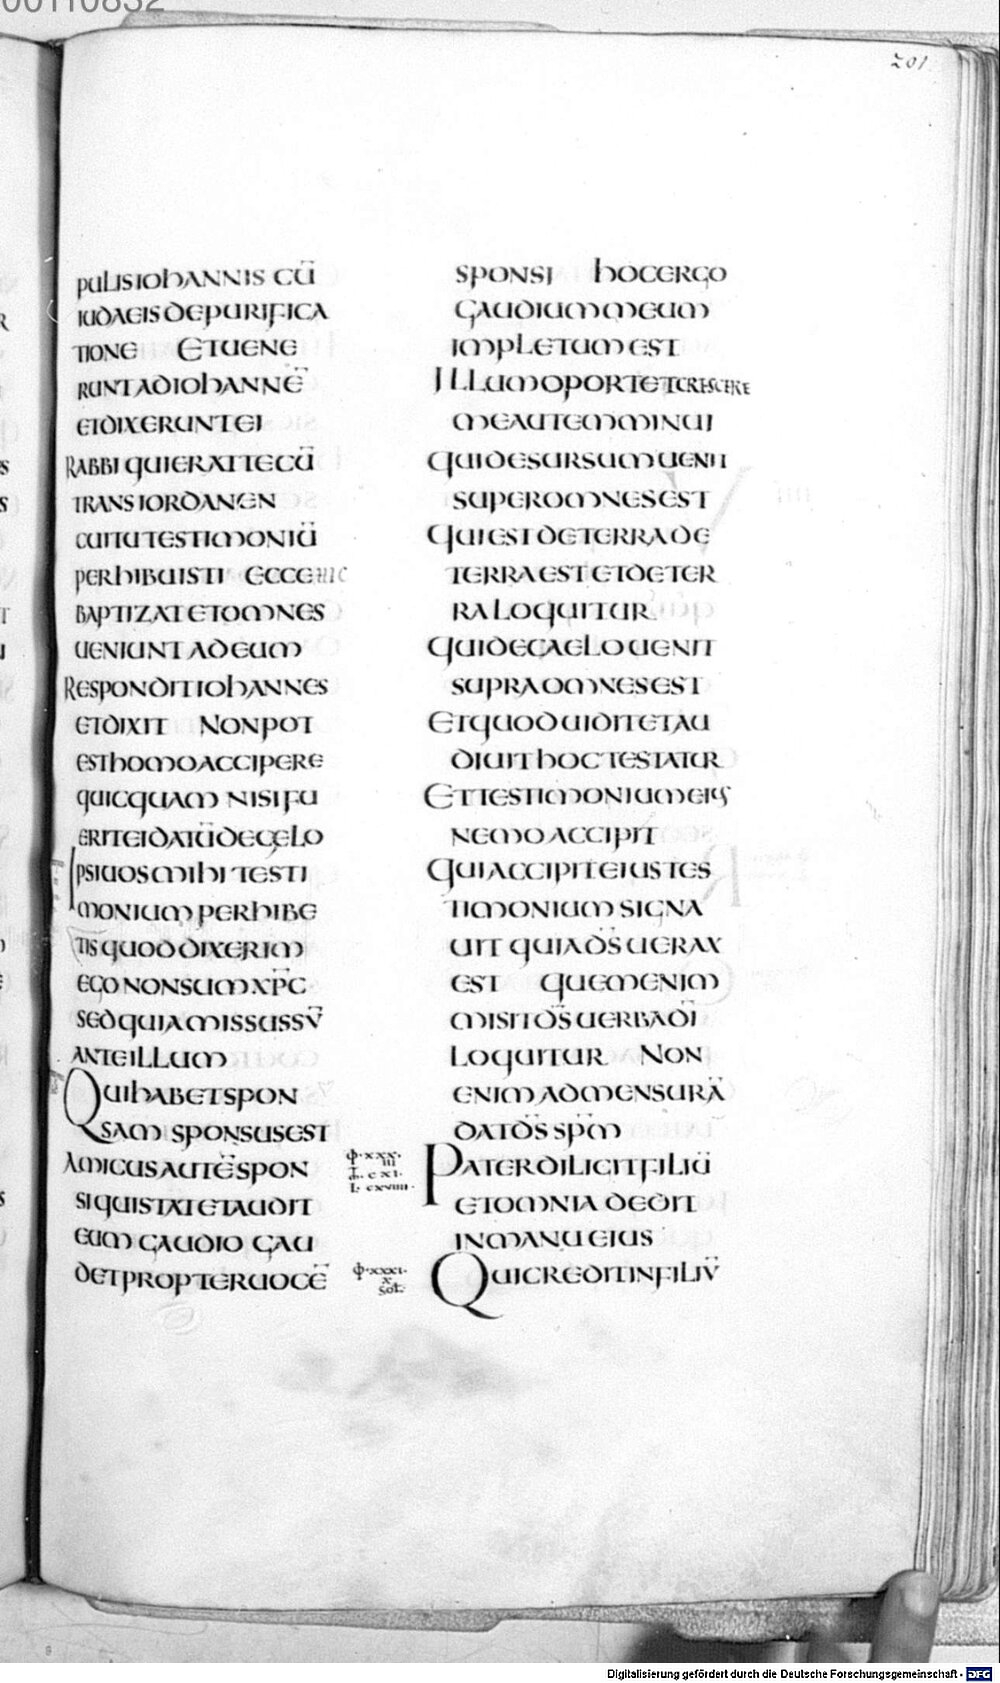 00110832
201
pulis iohannis cū
iudaeis de purifica
tione Et uene
runt ad iohannē
et dixerunt ei
Rabbi qui erat tecū
trans iordanen
cui tu testimoniū
perhibuisti Ecce hic
baptizat et omnes
ueniunt ad eum
Respondit iohannes
et dixit Non pot
est homo accipere
quicquam nisi fu
erit ei datū de cęlo
Ipsi uos mihi testi
monium perhibe
tis quod dixerim
ego non sum xp̄c
sed quia missus sū
ante illum
Qui habet spon
sam sponsus est
Amicus autē spon
si qui stat et audit
eum gaudio gau
det propter uocē
sponsi hoc ergo
gaudium meum
impletum est
Illum oportet crescere
me autem minui
Qui desursum uenit
super omnes est
Qui est de terra de
terra est et de ter
ra loquitur
Qui de caelo uenit
supra omnes est
Et quod uidit et au
diuit hoc testatur
Et testimonium eius
nemo accipit
Qui accipit eius tes
timonium signa
uit quia d̄s uerax
est quem enim
misit d̄s uerba d̄i
loquitur Non
enim ad mensurā
dat d̄s sp̄m
φ·xxx·
iii
I·cxi·
L·cxviiii·
Pater diligit filiū
et omnia dedit
in manu eius
φ·xxxi·
x
sol·
Qui credit in filiū
Digitalisierung gefördert durch die Deutsche Forschungsgemeinschaft - DFG